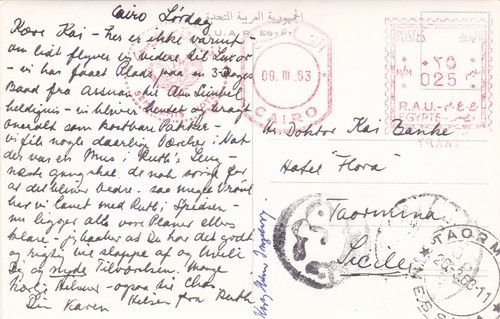 Cairo Lørdag
Kære Kai – her er ikke varmt –
om lidt flyver vi videre til Luxor
– vi har faaet Plads paa en 3-Dages
Baad fra Assuan til Abu Simbel
heldigvis – vi bliver hentet og bragt
overalt som kostbare Pakker –
vi fik nogle daarlige Værelser i Nat
der var en Mus i Ruth's Seng –
næste gang skal de nok sørge for
at det bliver bedre – saa meget Vrøvl
har vi lavet med Ruth i Spidsen –
nu ligger alle vore Planer ellers
klare – jeg haaber at Du har det godt
og rigtig vil slappe af og hvile
Dig og nyde Tilværelsen. Mange
Hilsner – ogsaa til
Din Karen
Hilsen fra Ruth
الجمهورية العربية المتحدة
U.A.R. EGYPT
09. III. 63
CAIRO
POSTES
M/M ٢٥
025
R.A.U.
EGYPTE
Hr. Doktor Kai Banke
Hotel "Flora"
Taormina
Sicilien
TAORM